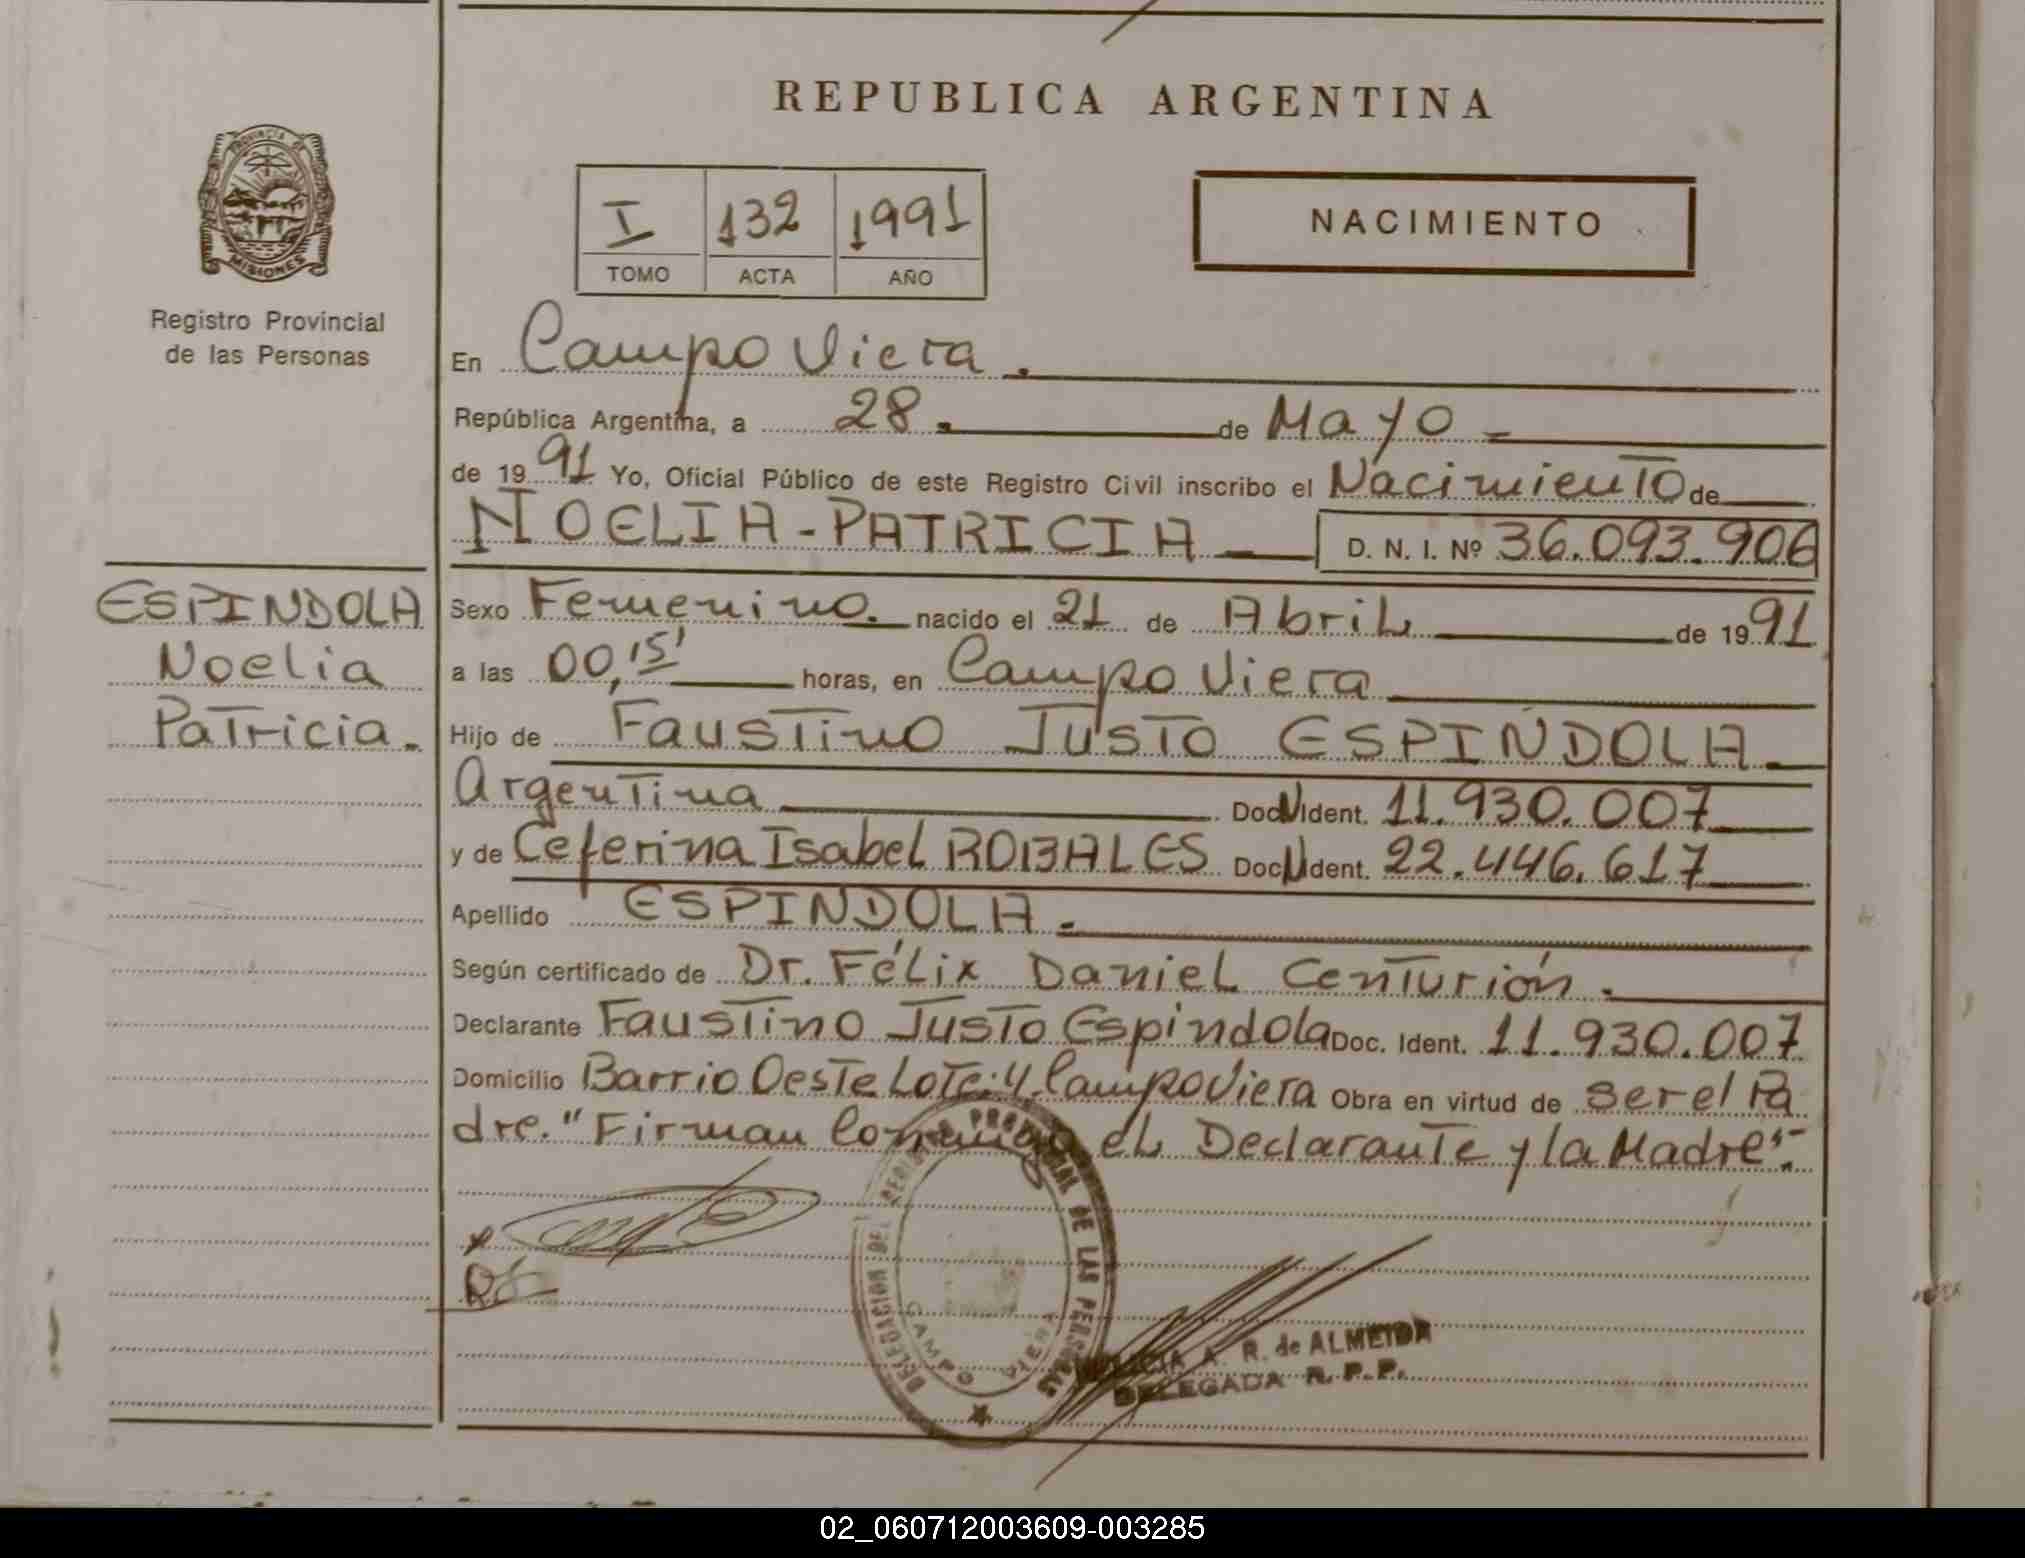 REPUBLICA ARGENTINA
PROVINCIA DE
MISIONES
Registro Provincial
de las Personas
I 132 1991
TOMO ACTA AÑO
NACIMIENTO
En Campo Viera.
República Argentina, a 28. de Mayo
de 1991 Yo, Oficial Público de este Registro Civil inscribo el Nacimiento de
NOELIA-PATRICIA D. N. I. Nº 36.093.906
ESPINDOLA
Noelia
Patricia.
Sexo Femenino. nacido el 21 de Abril de 1991
a las 00,15' horas, en Campo Viera
Hijo de Faustino Justo ESPINDOLA
Argentina Doc N Ident. 11.930.007
y de Ceferina Isabel ROBALES Doc N Ident. 22.446.617
Apellido ESPINDOLA.
Según certificado de Dr. Félix Daniel Centurión.
Declarante Faustino Justo Espindola Doc. Ident. 11.930.007
Domicilio Barrio Oeste Lote: 4. Campo Viera Obra en virtud de ser el Pa
dre. "Firman Conmigo el Declarante y la Madre".-
DELEGACION DEL REGISTRO PROVINCIAL DE LAS PERSONAS
CAMPO VIERA
A. R. de ALMEIDA
DELEGADA R. P. P.
02_060712003609-003285